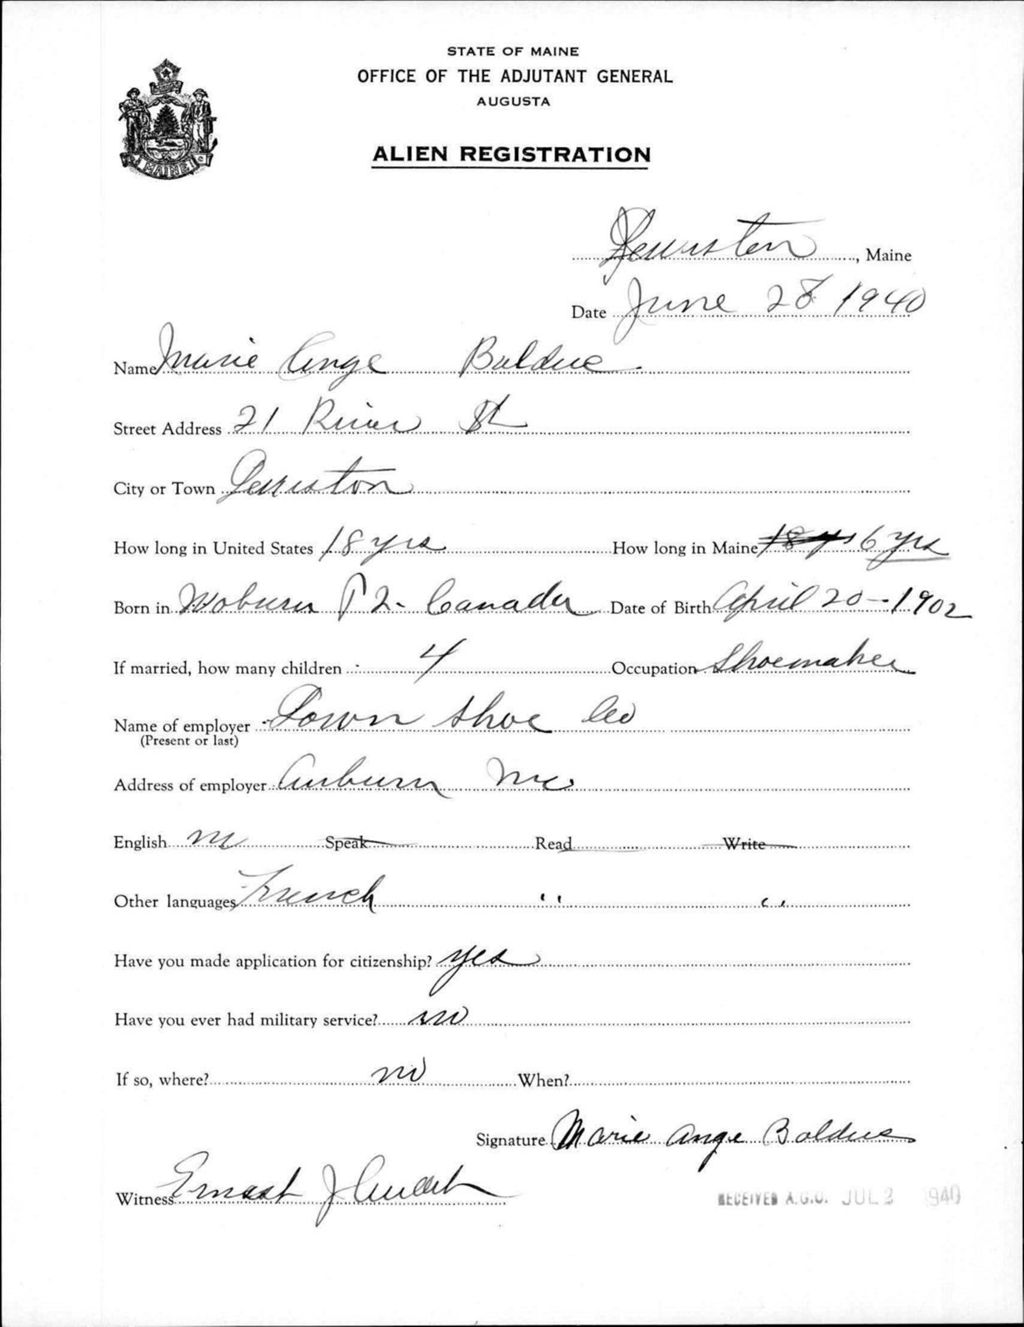 STATE OF MAINE
OFFICE OF THE ADJUTANT GENERAL
AUGUSTA
ALIEN REGISTRATION
MAINE
Lewiston, Maine
Date June 28 1940
Name Marie Ange Bolduc
Street Address 21 River St
City or Town Lewiston
How long in United States 18 yrs How long in Maine 16 yrs
Born in Woburn P Q. Canada Date of Birth April 20-1902
If married, how many children 4 Occupation Shoemaker
Name of employer Lown Shoe Co
(Present or last)
Address of employer Auburn Me
English Speak Read Write
Other languages French " "
Have you made application for citizenship? yes
Have you ever had military service? no
If so, where? no When?
Signature Marie Ange Bolduc
Witness Ernest J
RECEIVED A.G.O. JUL 2 1940